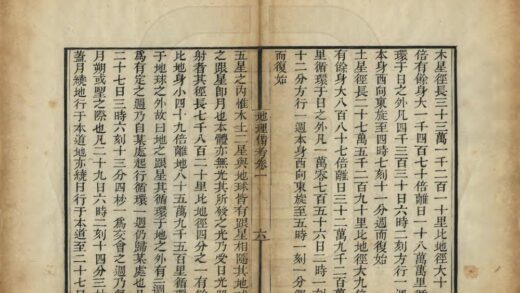 木星徑長三十三萬一千二百一十里比地徑大十
倍有餘身大一千四百七十倍離日一十八萬萬里循
環于日之外凡四千三百三十日六時二刻方行一週
本身西向東旋至四時七刻十一分週而復始
土星徑長二十七萬五千二百九十里比地徑大九倍
有餘身大八百八十七倍離日三十三萬九千二百萬
里循環于日之外凡一萬零七百五十六日八時一刻
十二分方行一週本身西向東旋至五時一刻一分
而復始
地理備考卷一
六
五星之內惟木土二星與地球皆有跟星相隨其地球
之跟星卽月也本體亦無光其所發之光乃受日光照
射者其徑長七千八百二十里比地徑四分之一有餘
比地身小四十九倍離地八十五萬九千五百里循環
于地球之外故曰地之跟星其循環于地之外有二週
為有定之週乃自某處起行循環一週仍歸某處也凡
二十七日三時六刻十三分四秒一為交會之週乃每
月朔或望之際也凡二十九日六時二刻十四分三
蓋月繞地行于本道地亦繞日行于本道至二十七日